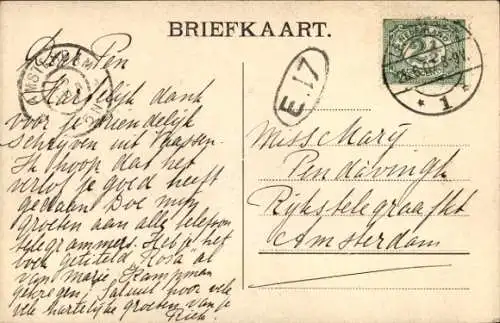 BRIEFKAART.
Hartelijk dank
voor je vriendelijk
schrijven uit Vaassen.
Ik hoop dat het
verlof je goed heeft
gedaan Doe mijn
groeten aan alle
telegrammers. Heb je het
boek getiteld Rosa
Marie Kampman
gekregen, Saluut voor vele
vele hartelijke groeten van je
Riek.
AMSTERDAM
E.17
2½
1
Miss Marij
Pendavingh
Rijkstelegraafkt
Amsterdam